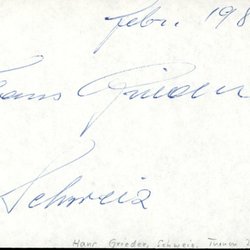 Febr. 198
Hans Grieder
Schweiz
Hans Grieder, Schweiz.